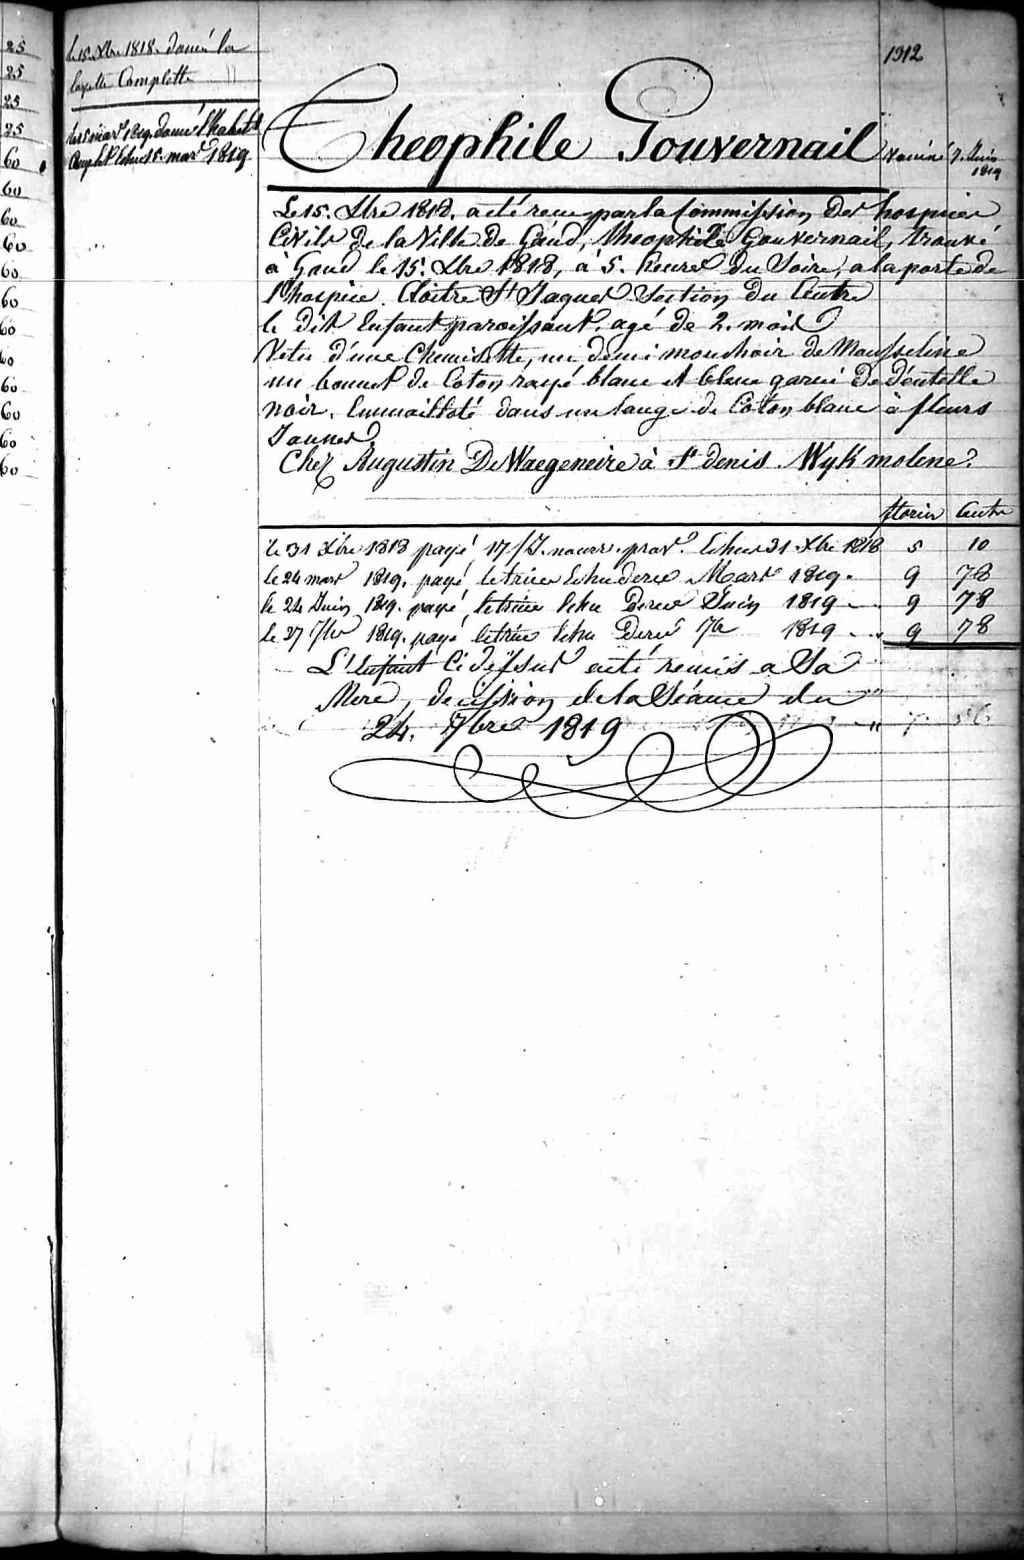 25
25
25
25
60
60
60
60
60
60
60
60
60
60
60
60
le 15. Xbre 1818. donné la
layette Complette
le 15 mars 1819. donné l'habil.t
Complet Echu 15. mars 1819
1312
Theophile Gouvernail
vacciné 7. Juin
1819
Le 15. Xbre 1818. a eté recu par la Commission des hospices
Civils de la Ville de Gand, Theophile Gouvernail, trouvé
à Gand le 15. Xbre 1818, à 5. heures du Soire, a la porte de
l'hospice. Cloitre St Jaques Section du Centre
le dit Enfant paroissant. agé de 2. mois
Vetu d'une Chemisette, un demi mouchoir de Mousseline
un bonnet de Coton rayé blanc et bleu garni De d'entelle
noir. Emmailloté dans un lange de Coton blanc à fleurs
Jaunes.
Chez Augustin De Waegeneire à St denis. Wyk molene.
florin Cents
le 31 Xbre 1818 payé 17/J. nourr. prov.e Echu 31. Xbre 1818 5 10
le 24 mars 1819. payé letrime Echu derer Mars 1819. 9 78
le 24 Juin 1819. payé letrime Echu Derer Juin 1819 9 78
le 27 7bre 1819. payé letrime Echu Derer 7bre 1819 9 78
L'Enfant Cidessus a eté remis a Sa
Mere, decission de la Séance du
24. 7bre 1819